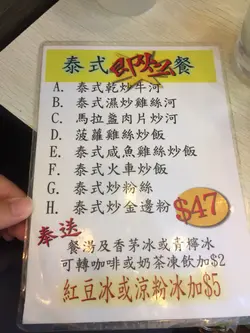 泰式即炒餐
A. 泰式乾炒牛河
B. 泰式濕炒雞絲河
C. 馬拉盏肉片炒河
D. 菠蘿雞絲炒飯
E. 泰式咸魚雞絲炒飯
F. 泰式火車炒飯
G. 泰式炒粉絲
H. 泰式炒金邊粉
$47
奉送
餐湯及香茅冰或青檸冰
可轉咖啡或奶茶凍飲加$2
紅豆冰或涼粉冰加$5